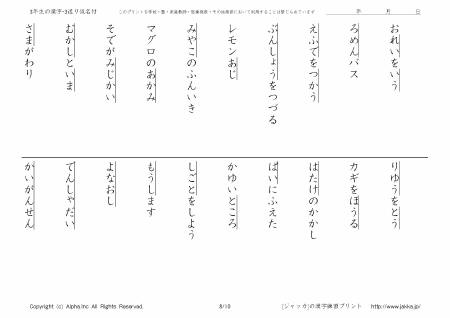 3年生の漢字-3送り仮名付
このプリントを学校・塾・家庭教師・医療機関・その他施設において利用することは禁じられています
年 月 日
おれいをいう
ろめんバス
えふでをつかう
ぶんしょうをつづる
レモンあじ
みやこのふんいき
マグロのあかみ
そでがみじかい
むかしといま
さまがわり
りゆうをとう
カギをほうる
はたけのかかし
ばいにふえた
かゆいところ
しごとをしよう
もうします
よなおし
でんしゃだい
がいがんせん
Copyright (c) Alpha.Inc All Rights Reserved.
8/10
[ジャッカ]の漢字練習プリント http://www.jakka.jp/